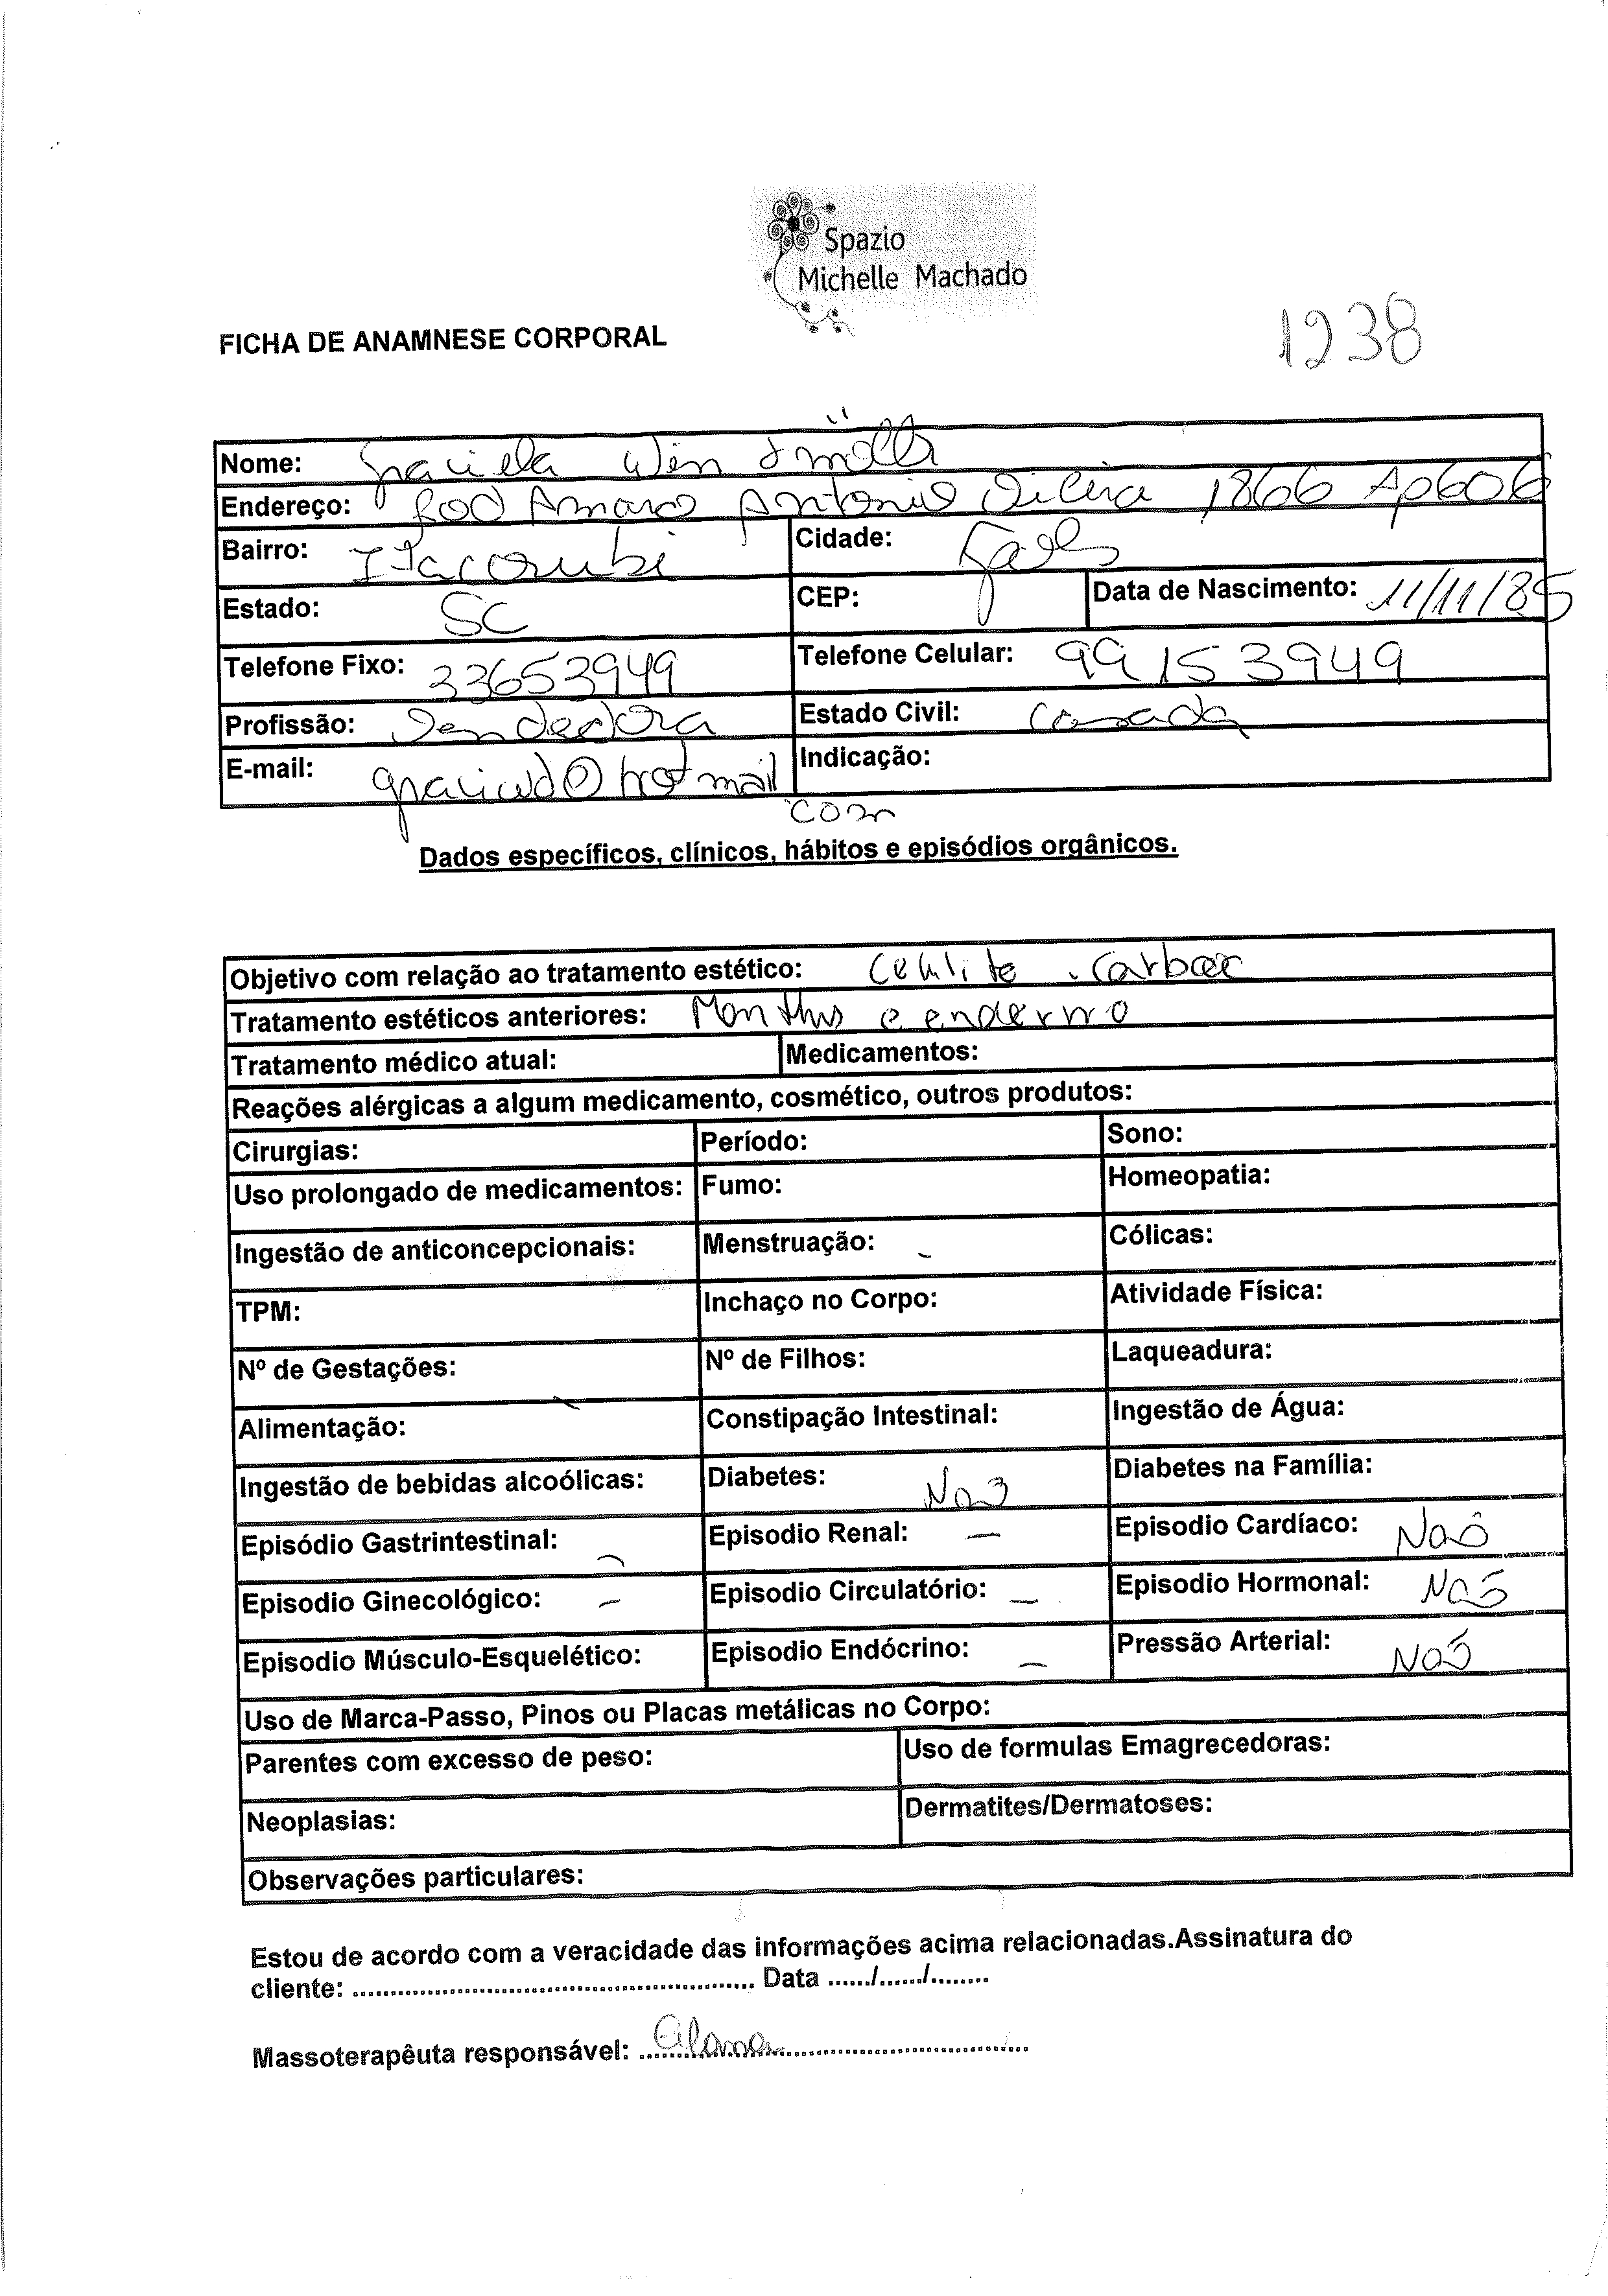 Spazio
Michelle Machado
FICHA DE ANAMNESE CORPORAL
1238
Nome: Graciela
Endereço: Rod Amaro Antonio Vieira 1866 Ap606
Bairro: Itacorubi Cidade: Fpols
Estado: SC CEP: Data de Nascimento: 11/11/85
Telefone Fixo: 33653949 Telefone Celular: 99153949
Profissão: Vendedora Estado Civil: Casada
E-mail: @hotmail Indicação:
com
Dados específicos, clínicos, hábitos e episódios orgânicos.
Objetivo com relação ao tratamento estético: Celulite
Tratamento estéticos anteriores: Manthus e endermo
Tratamento médico atual: Medicamentos:
Reações alérgicas a algum medicamento, cosmético, outros produtos:
Cirurgias: Período: Sono:
Uso prolongado de medicamentos: Fumo: Homeopatia:
Ingestão de anticoncepcionais: Menstruação: - Cólicas:
TPM: Inchaço no Corpo: Atividade Física:
Nº de Gestações: Nº de Filhos: Laqueadura:
Alimentação: Constipação Intestinal: Ingestão de Água:
Ingestão de bebidas alcoólicas: Diabetes: Não Diabetes na Família:
Episódio Gastrintestinal: - Episodio Renal: - Episodio Cardíaco: Não
Episodio Ginecológico: - Episodio Circulatório: - Episodio Hormonal: Não
Episodio Músculo-Esquelético: Episodio Endócrino: - Pressão Arterial: Não
Uso de Marca-Passo, Pinos ou Placas metálicas no Corpo:
Parentes com excesso de peso: Uso de formulas Emagrecedoras:
Neoplasias: Dermatites/Dermatoses:
Observações particulares:
Estou de acordo com a veracidade das informações acima relacionadas.Assinatura do
cliente: ...................................................... Data ....../....../........
Massoterapêuta responsável: Alana